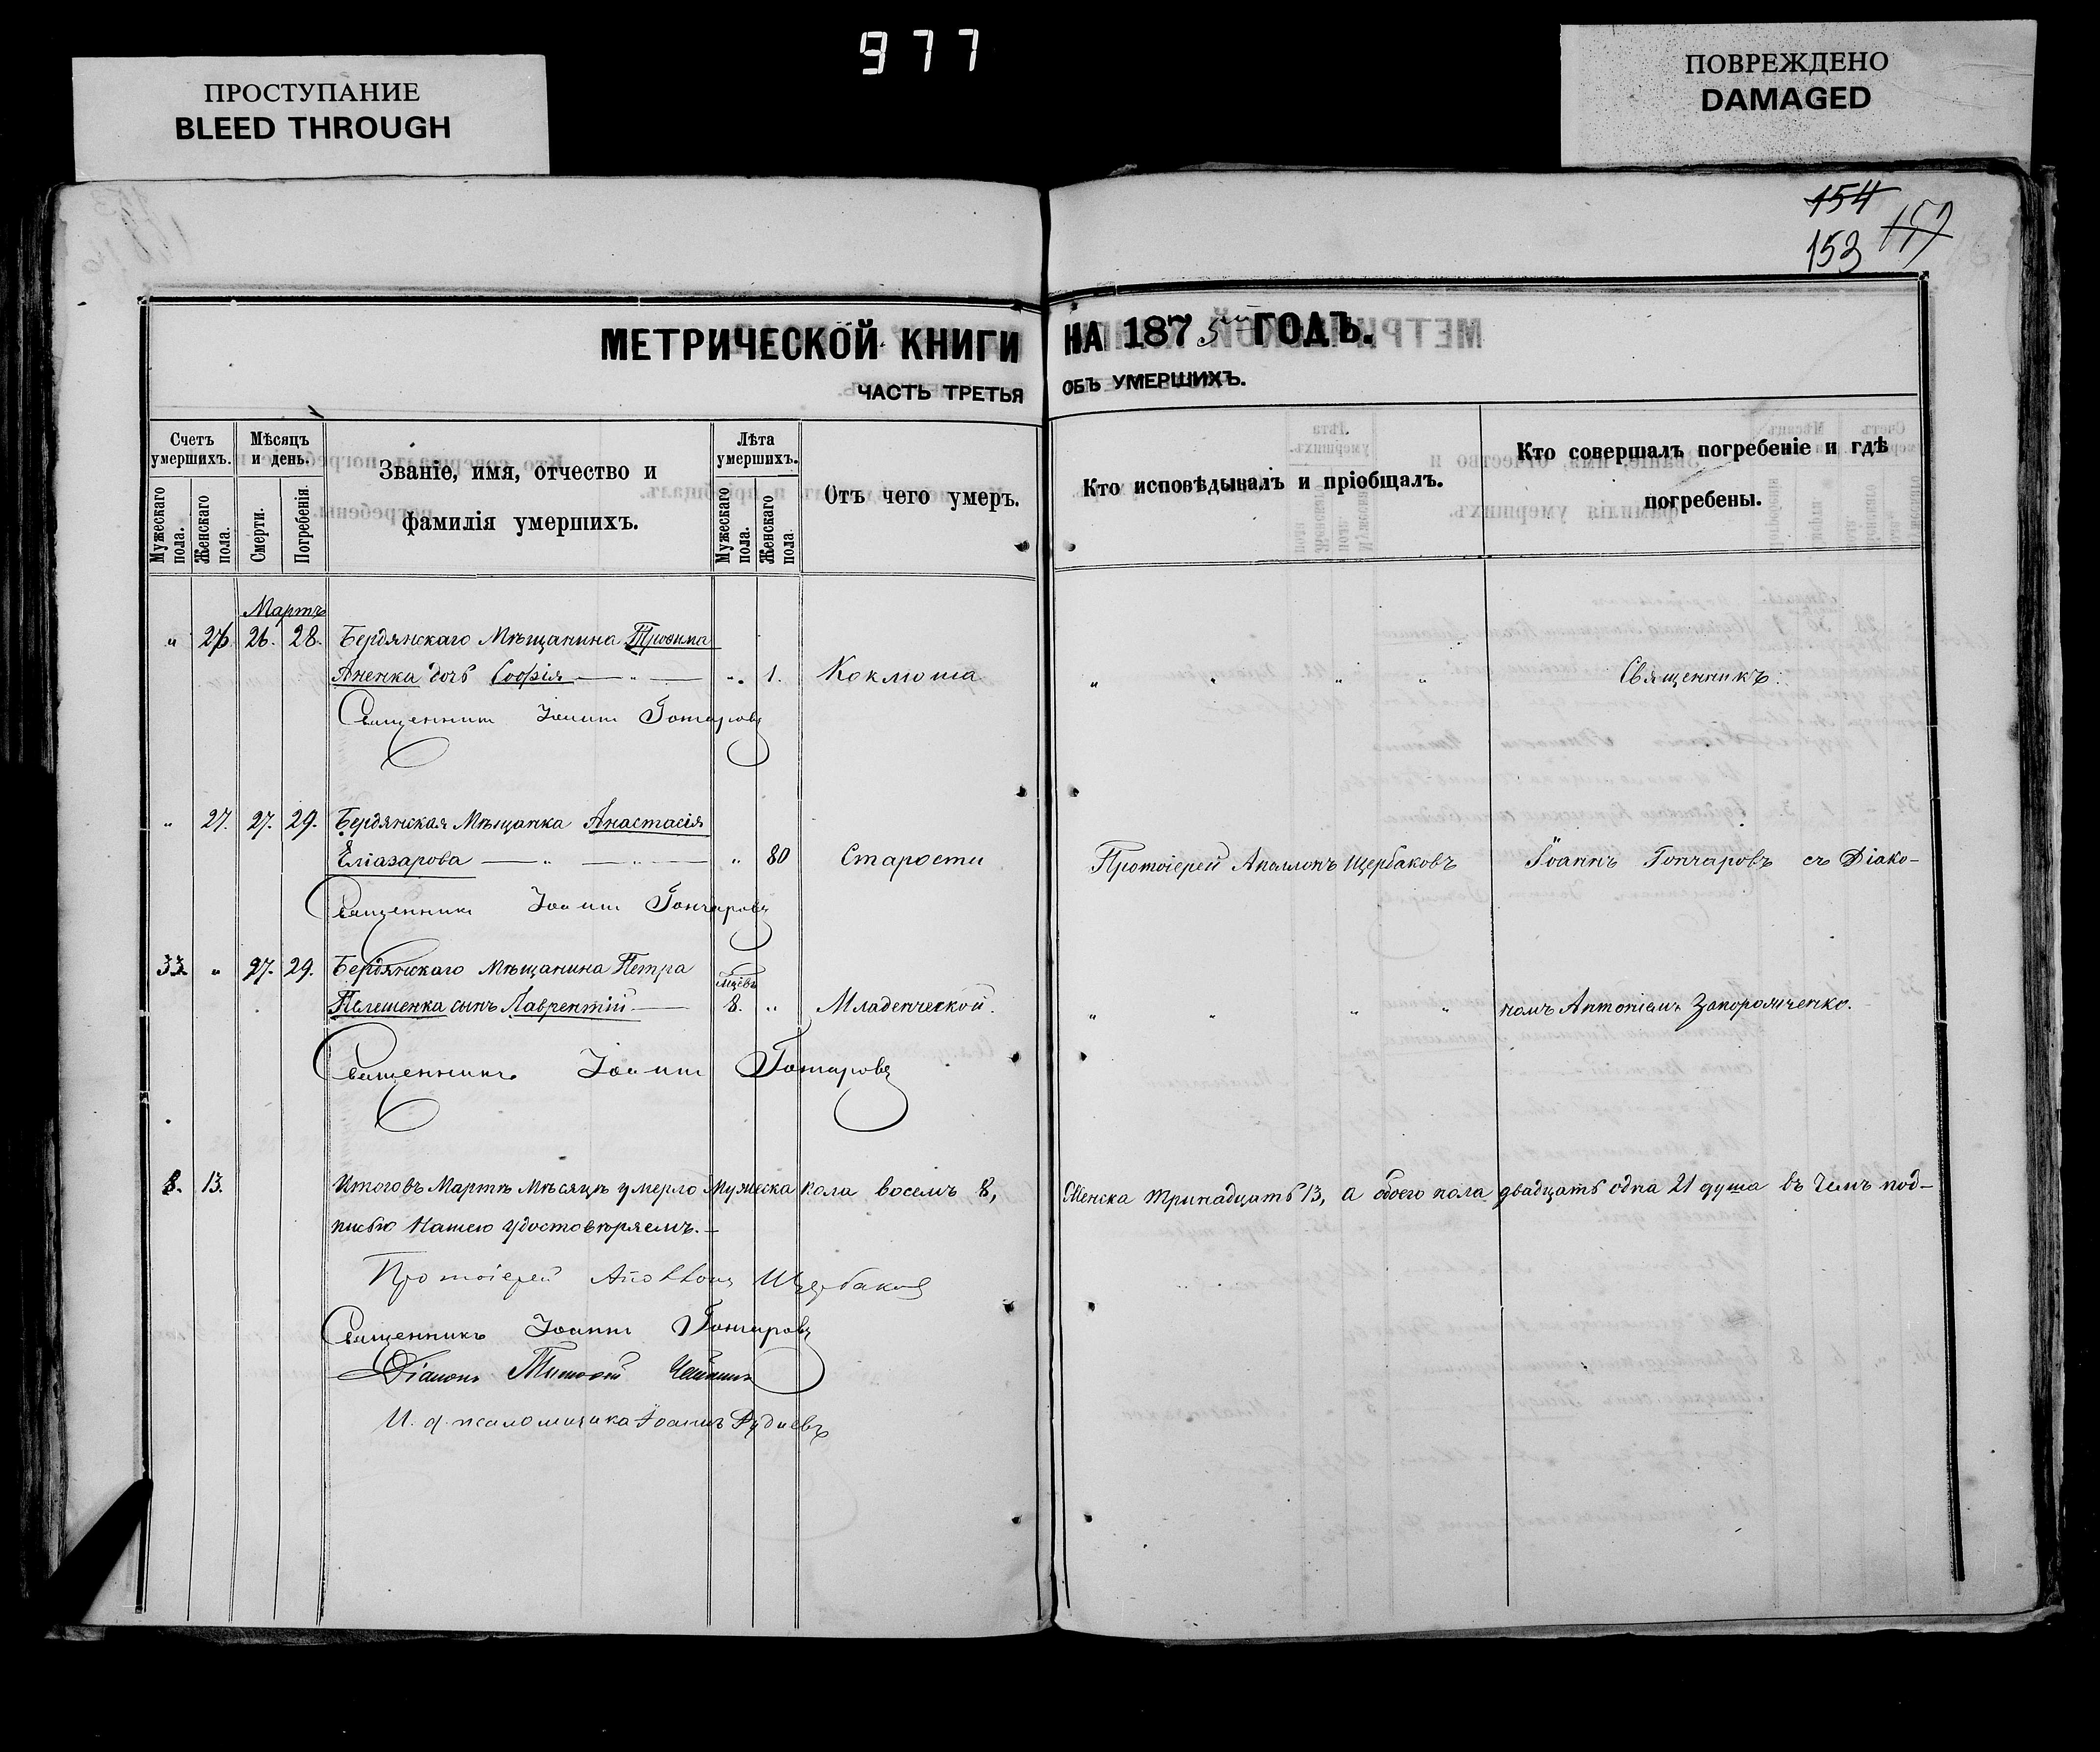 977
ПРОСТУПАНИЕ
BLEED THROUGH
ПОВРЕЖДЕНО
DAMAGED
154
153
МЕТРИЧЕСКОЙ КНИГИ НА 1875 ГОДЪ.
ЧАСТЬ ТРЕТЬЯ ОБЪ УМЕРШИХЪ.
Счетъ умершихъ.
Мужескаго пола.
Женскаго пола.
Мѣсяцъ и день.
Смерти.
Погребенія.
Званіе, имя, отчество и
фамилія умершихъ.
Лѣта умершихъ.
Мужескаго пола.
Женскаго пола.
Отъ чего умеръ.
Кто исповѣдывалъ и пріобщалъ.
Кто совершалъ погребеніе и гдѣ
погребены.
Мартъ
" 26 26. 28. Бердянскаго Мѣщанина
дочь Софія — " — ". 1. Коклюша " " " " Священникъ
Священникъ Іоаннъ Гончаровъ
" 27. 27. 29. Бердянская Мѣщанка Анастасія
Еліазарова — " — " — " 80 Старости Протоіерей Аполлонъ Щербаковъ Іоаннъ Гончаровъ съ Діако-
Священникъ Іоаннъ Гончаровъ
33. " 27. 29. Бердянскаго Мѣщанина Петра
сынъ Лаврентій — 8. " Младенческой. " " " " номъ Антоніемъ Запорожченко.
Священникъ Іоаннъ Гончаровъ
8. 13. Итого въ Мартѣ Мѣсяцѣ умерло Мужеска пола восемь 8, Женска тринадцать 13, а обоего пола двадцать одна 21 душа въ чемъ под-
писью Нашею удостовѣряемъ. —
Протоіерей Аполлонъ Щербаковъ
Священникъ Іоаннъ Гончаровъ
Діаконъ
И. д. псаломщика Іоаннъ